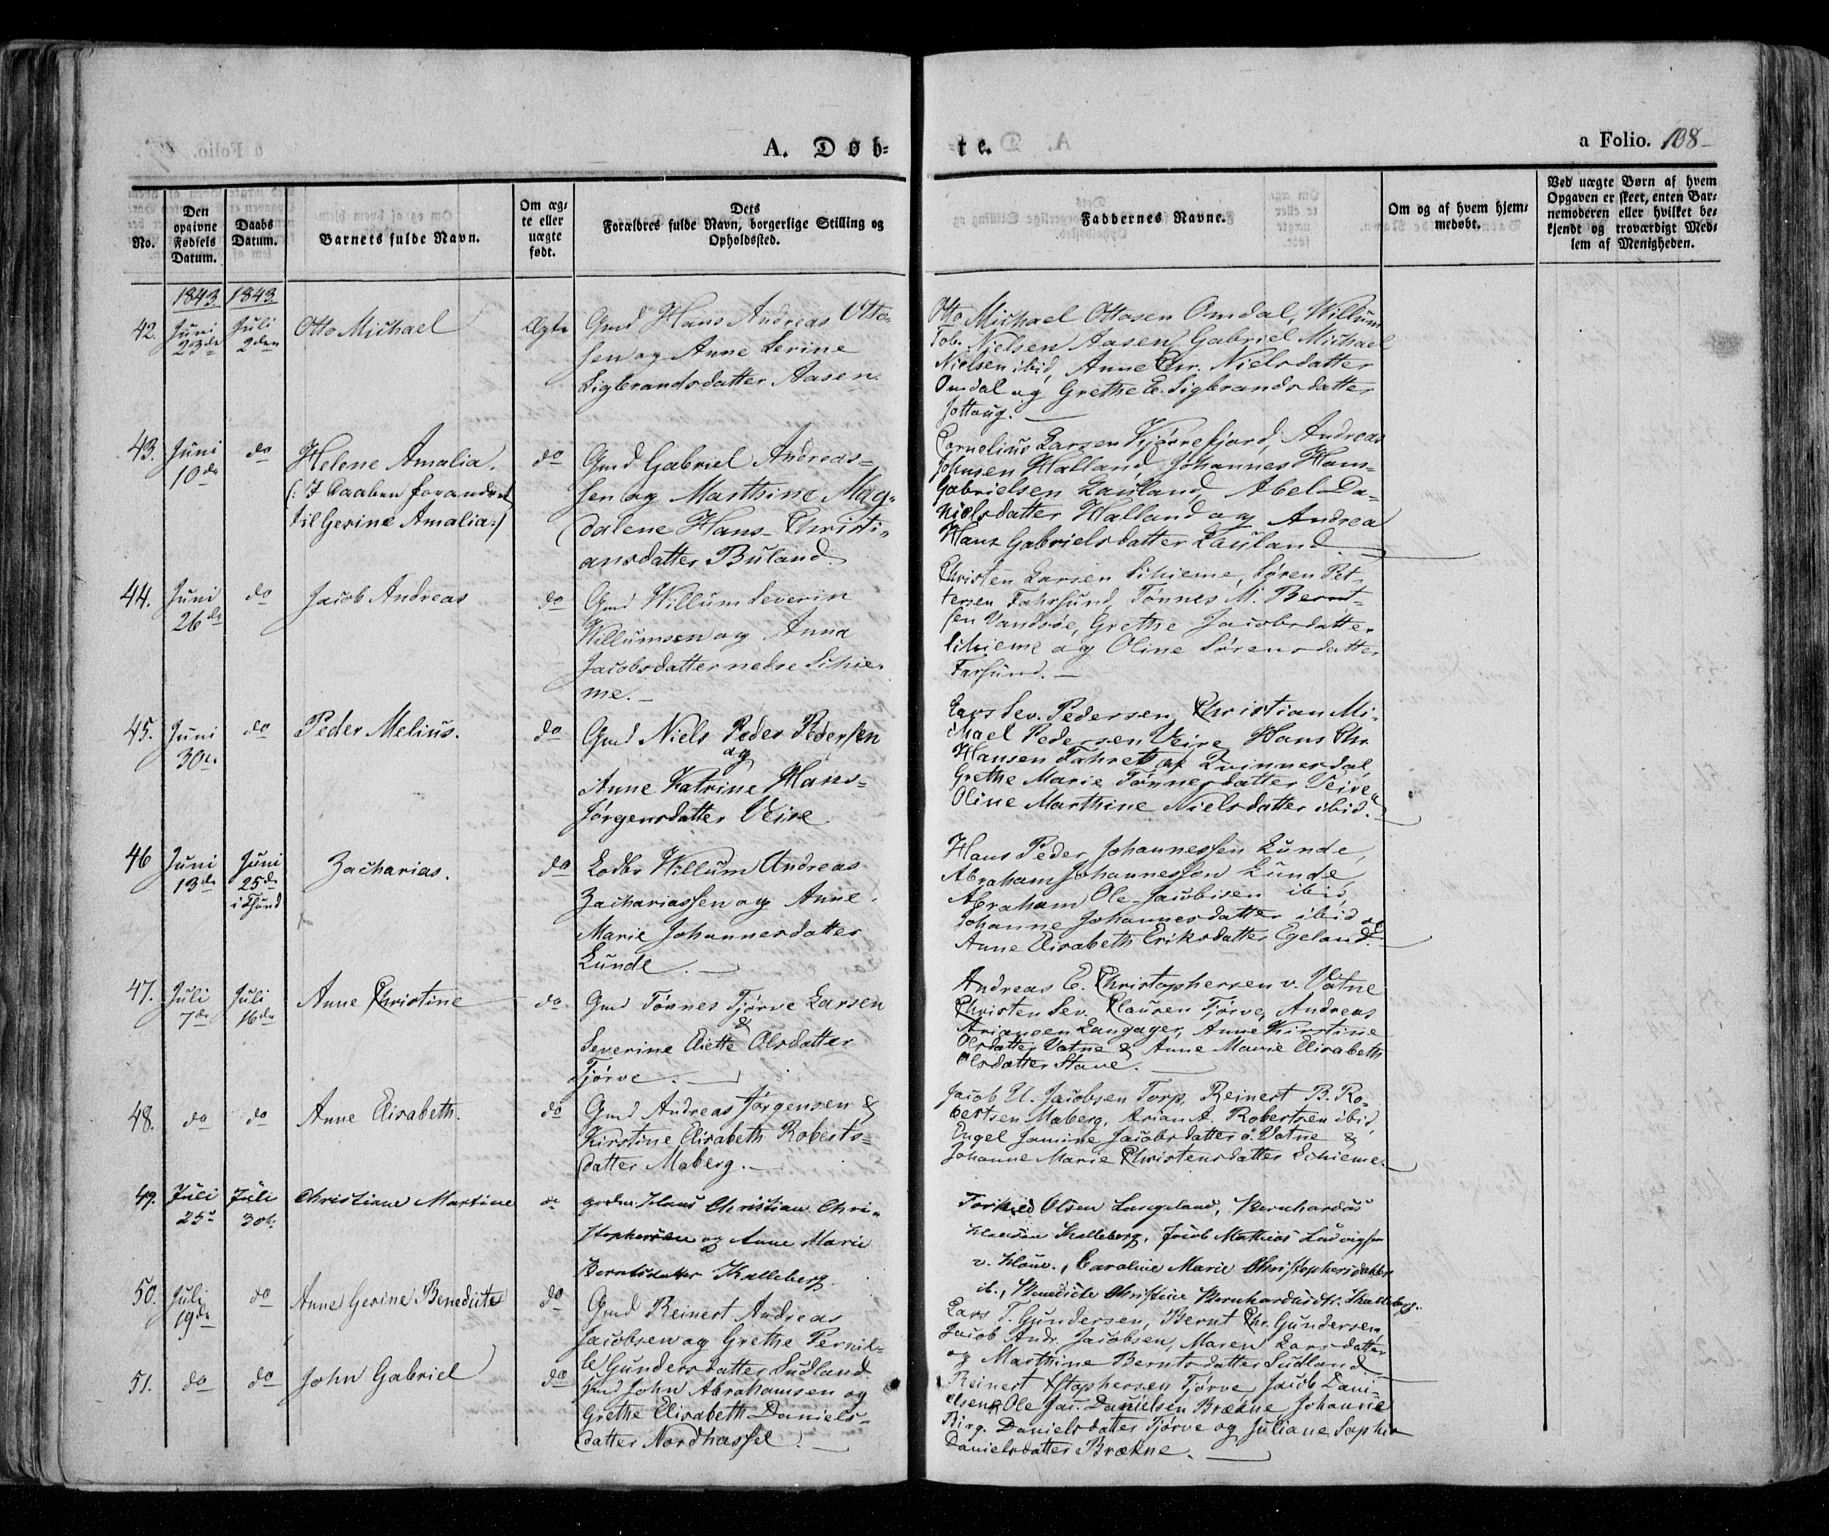 A. Døb-
te.
a Folio. 108
No.
Den opgivne Fødsels Datum.
Daabs Datum.
Barnets fulde Navn.
Om ægte eller uægte født.
Dets Forældres fulde Navn, borgerlige Stilling og Opholdssted.
Faddernes Navne.
Om og af hvem hjemmedøbt.
Ved uægte Børn af hvem Opgaven er skeet, enten Barnemoderen eller hvilket bekjendt og troværdigt Medlem af Menigheden.
1843 1843
42. Juni 23de Juli 2den Otto Michael Ægte
Gmd Hans Andreas Otto-
sen og Anne Serine
Sigbrandsdatter Aasen.
Otto Michael Ottosen Omdal, Willum
Tob. Nielsen Aasen, Gabriel Michael
Nielsen ibid, Anne Chr. Nielsdatter
Omdal og Grethe E. Sigbrandsdatter
43. Juni 10de do Helene Amalia.
(: I Daaben forandret
til Gerine Amalia :)
do
Gmd Gabriel Andreas-
sen og Marthine Mag-
dalene Hans-Christi-
ansdatter Buland.
Cornelius Larsen Kjørrefjord, Andreas
Johnsen Halland, Johannes Hans-
Gabrielsen Lauland, Abel Da-
nielsdatter Halland og Andrea
Hans Gabrielsdatter Lauland.
44. Juni 26de do Jacob Andreas do
Gmd Willum Severin
Willumsen og Anna
Jacobsdatter nedre Skie-
me.
Christen Larsen Skieme, Søren Pet-
tersen Fahrsund, Tønnes M. Bernt-
sen Vandsøe, Grethe Jacobsdatter
Skieme og Oline Sørensdatter
Farsund.
45. Juni 30te do Peder Melius. do
Gmd Niels Peder Pedersen
og
Anne Katrine Hans-
Jørgensdatter Veire.
Lars Sev. Pedersen, Christian Mi-
chael Pedersen Veire, Hans Chr.
Hansen Fahret af Quinnesdal,
Grethe Marie Tønnesdatter Veire,
Oline Marthine Nielsdatter ibid.
46 Juni 13de Juni 25de i Fsund Zacharias. do
Lodbr Willum Andreas
Zachariassen og Anne
Marie Johannesdatter
Lunde.
Hans Peder Johannessen Lunde,
Abraham Johannessen Lunde,
Abraham Ole Jacobsen ibid,
Johanne Johannesdatter ibid og
Anne Elisabeth Eriksdatter Egeland.
47. Juli 7de Juli 16de Anne Christine do
Gmd Tønnes Tjørve Larsen
&
Severine Eliette Olsdatter
Tjørve.
Andreas E. Christophersen v. Vatne
Christen Sev. Clausen Tjørve, Andreas
Ariansen Langager, Anne Kirstine
Olsdatter Vatne & Anne Marie Elisabeth
Olsdatter Stave.
48. do do Anne Elisabeth. do
Gmd Andreas Jørgensen &
Kirstine Elisabeth Roberts-
datter Maberg.
Jacob U. Jacobsen Torp, Reinert B. Ro-
bertsen Maberg, Arian A. Robertsen ibid,
Engel Jamine Jacobsdatter ø. Vatne &
Johanne Marie Christensdatter Skieme.
49. Juli 25de Juli 30te Christiane Martine do
Gmd Klaus Christian Chri-
stophersen og Anne Marie
Berntsdatter Kalleberg.
Torkild Olsen Langeland, Bernhardus
Klausen Kalleberg, Jacob Mathias Ludvigsen
v. Haue, Caroline Marie Christophersdatter
ib., Benedicte Christine Bernhardusdtr. Kalleberg.
50. Juli 19de do Anne Gerine Benedicte do
Gmd Reinert Andreas
Jacobsen og Grethe Pernil-
le Gundersdatter Sudland
Lars T. Gundersen, Bernt Chr. Gundersen,
Jacob Andr. Jacobsen, Maren Larsdatter
og Marthine Berntsdatter Sudland
51. do do John Gabriel do
Gmd John Abrahamsen og
Grethe Elisabeth Daniels-
datter Nordhassel.
Reinert Stophersen Tjørve, Jacob Dani-
elsen & Ole Jac. Danielsen Brækne, Johanne
Birg. Danielsdatter Tjørve og Juliane Sophie
Danielsdatter Brækne.